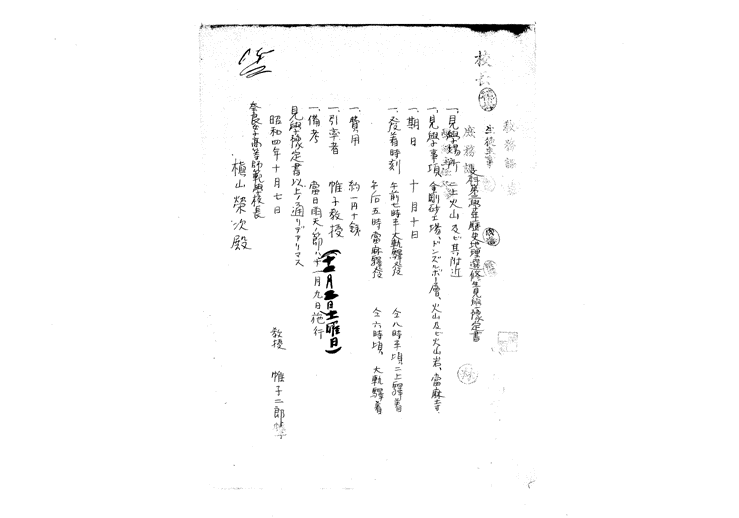 校長
教務課
生徒主事
庶務課
文科第三學年歴史地理選修生見學豫定書
一、見學場所 二上火山及ビ其附近
一、見學事項 金剛砂工場、ドンズルボー層、火山及ビ火山岩、當麻寺
一、期日 十月十日
一、發着時刻 午前七時半大軌驛發 仝八時半頃二上驛着
午后五時當麻驛發 仝六時頃、大軌驛着
一、費用 約一円十錢
一、引率者 帷子教授
(十一月二日土曜日)
一、備考 當日雨天ノ節ハ十一月九日施行
見學豫定書以上ノ通リデアリマス
昭和四年十月七日
教授 帷子二郎
奈良女子高等師範學校長
槇山榮次殿